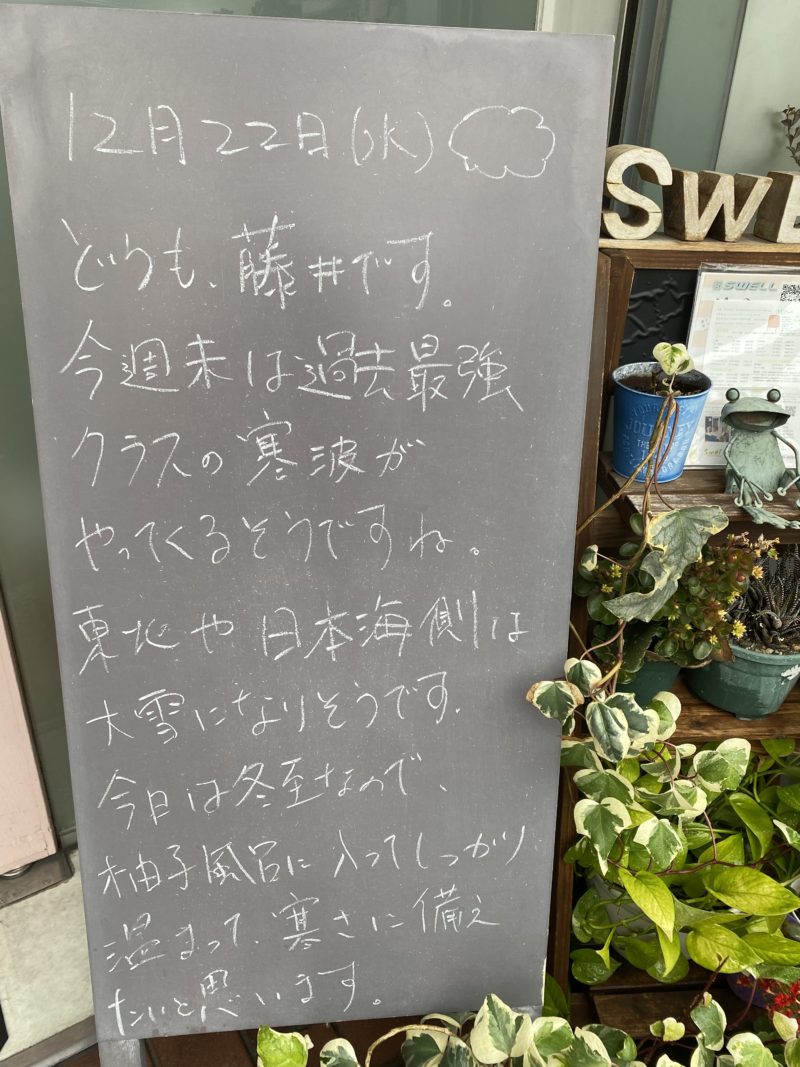 12月22日(水)
どうも、藤井です。
今週末は過去最強
クラスの寒波が
やってくるそうですね。
東北や日本海側は
大雪になりそうです。
今日は冬至なので、
柚子風呂に入ってしっかり
温まって、寒さに備え
たいと思います。
SWE
SWELL